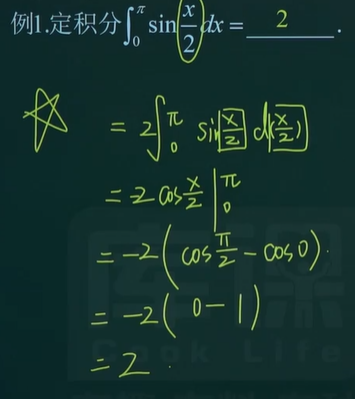 例1.定积分∫₀^π sin(x/2)dx = 2 .
= 2∫₀^π sin x/2 d(x/2)
= -2 cos x/2 |₀^π
= -2( cos π/2 - cos0).
= -2( 0-1)
= 2.
库课
Cook Life